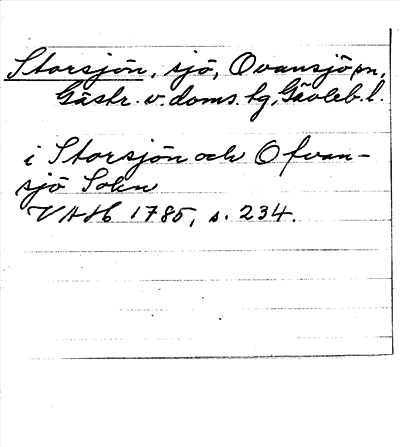 Storsjön, sjö, Ovansjö sn,
Gästr. v. doms. tg, Gävleb. l.
i Storsjön och Ofvan-
sjö Sokn
VAH 1785, s. 234.